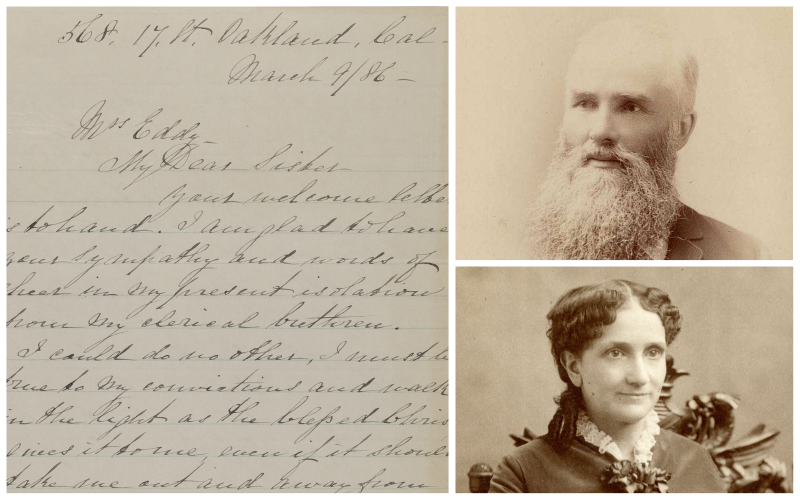 568. 17. St. Oakland, Cal-
March 9/86-
Mrs Eddy-
My Dear Sister
Your welcome lette
s to hand. I am glad to have
your sympathy and words of
cheer in my present isolation
from my clerical brethren.
I could do no other, I must b
true to my convictions and walk
in the light as the blessed Chris
gives it to me, even if it shoul
take me out and away from